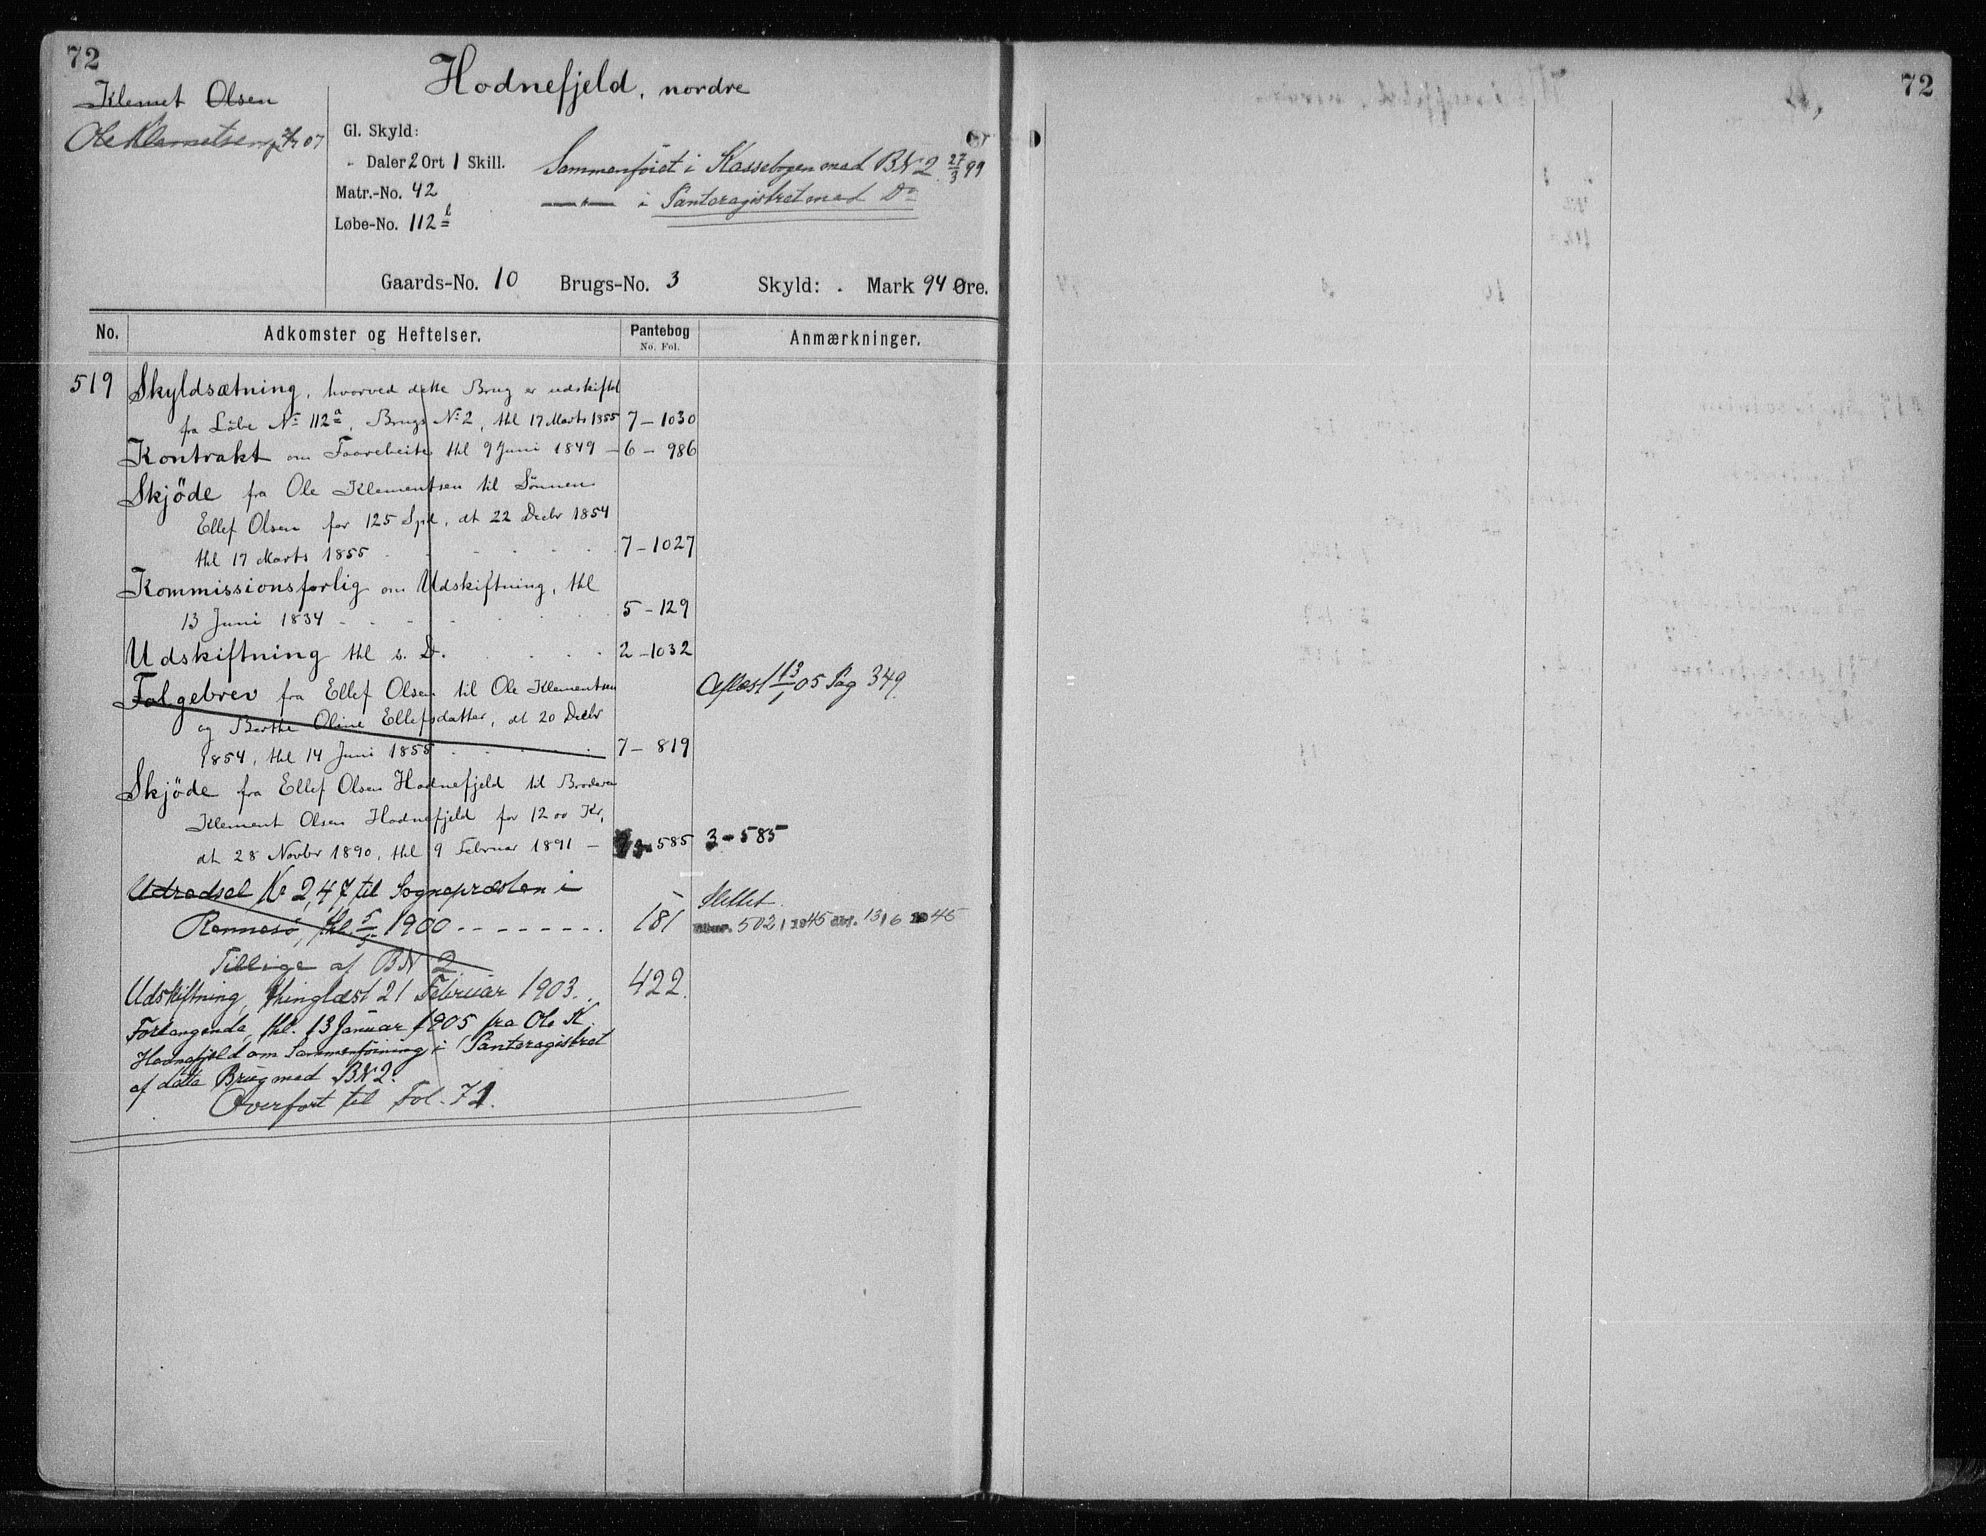 72
Hodnefjeld, nordre
Klemet Olsen
Ole Klemetsen 07
Gl. Skyld:
" Daler 2 Ort 1 Skill.
Matr.-No. 42
Løbe-No. 112
Sammenføiet i Kassebogen med BN 2 27/3 99
—"— i Panteregistret med Do
Gaards-No. 10 Brugs-No. 3 Skyld: . Mark 94 Øre.
No. Adkomster og Heftelser. Pantebog No. Fol. Anmærkninger.
519 Skyldsætning, hvorved dette Brug er udskiftet
fra Löbe No 112a, Brugs No 2, thl 17 Marts 1855 7-1030
Kontrakt om Faarebeite thl 9 Juni 1849 - 6-986
Skjöde fra Ole Klementsen til Sönnen
Ellef Olsen for 125 Spd, dt 22 Decbr 1854
thl 17 Marts 1855 7-1027
Kommissionsforlig om Udskiftning, thl
13 Juni 1834 5-129
Udskiftning thl s. D. 2-1032
Følgebrev fra Ellef Olsen til Ole Klementsen Aflæst 13/1 05 Pag 349
og Berthe Oline Ellefsdatter, dt 20 Decbr
1854, thl 14 Juni 1855 7-819
Skjöde fra Ellef Olsen Hodnefjeld til Broderen
Klement Olsen Hodnefjeld for 1200 Kr,
dt 28 Novbr 1890, thl 9 Februar 1891 - 3-585 3-585
Udredsel Kr 2,47 til Sognepræsten i Slettet.
Rennesö, thl 1900 181 502/1945 13/6 1945
Tillige af BN 2
Udskiftning, thinglæst 21 Februar 1903. 422.
Forlangende, thl. 13 Januar 1905 fra Ole K.
Hodnefjeld om Sammenføining i Panteregistret
af dette Brug med BN 2.
Overført til Fol. 71.
72